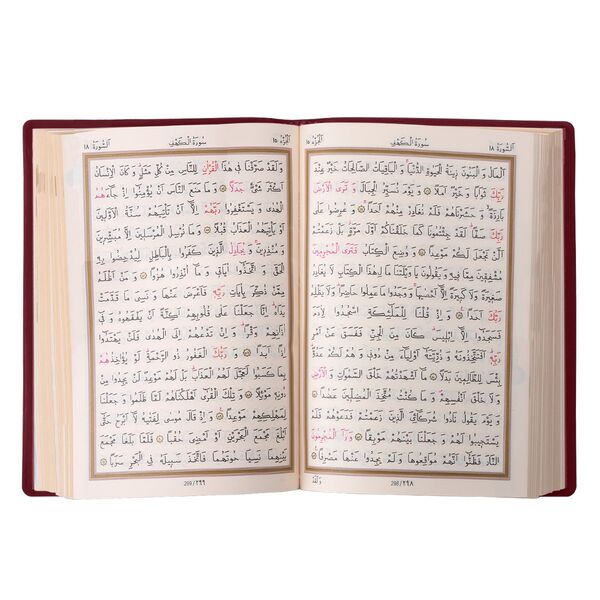 اَلسُّورَةُ ١٨
سُورَةُ الْكَهْفِ
اَلْجُزْءُ ١٥
اَلْمَالُ وَ الْبَنُونَ زِينَةُ الْحَيٰوةِ الدُّنْيَا وَ الْبَاقِيَاتُ الصَّالِحَاتُ خَيْرٌ عِنْدَ
رَبِّكَ ثَوَابًا وَ خَيْرٌ اَمَلًا وَ يَوْمَ نُسَيِّرُ الْجِبَالَ وَ تَرَى الْاَرْضَ
بَارِزَةً وَ حَشَرْنَاهُمْ فَلَمْ نُغَادِرْ مِنْهُمْ اَحَدًا وَ عُرِضُوا عَلٰى
رَبِّكَ صَفًّا لَقَدْ جِئْتُمُونَا كَمَا خَلَقْنَاكُمْ اَوَّلَ مَرَّةٍ بَلْ زَعَمْتُمْ
اَلَّنْ نَجْعَلَ لَكُمْ مَوْعِدًا وَ وُضِعَ الْكِتَابُ فَتَرَى الْمُجْرِمِينَ
مُشْفِقِينَ مِمَّا فِيهِ وَ يَقُولُونَ يَا وَيْلَتَنَا مَا لِهٰذَا الْكِتَابِ لَا يُغَادِرُ
صَغِيرَةً وَ لَا كَبِيرَةً اِلَّٓا اَحْصٰيهَا وَ وَجَدُوا مَا عَمِلُوا حَاضِرًا وَ لَا يَظْلِمُ
رَبُّكَ اَحَدًا وَ اِذْ قُلْنَا لِلْمَلٰٓئِكَةِ اسْجُدُوا لِاٰدَمَ
فَسَجَدُٓوا اِلَّٓا اِبْلِيسَ كَانَ مِنَ الْجِنِّ فَفَسَقَ عَنْ اَمْرِ
رَبِّهِ اَفَتَتَّخِذُونَهُ وَ ذُرِّيَّتَهُٓ اَوْلِيَٓاءَ مِنْ دُونِى وَ هُمْ لَكُمْ عَدُوٌّ
بِئْسَ لِلظَّالِمِينَ بَدَلًا مَٓا اَشْهَدْتُهُمْ خَلْقَ السَّمٰوَاتِ وَ الْاَرْضِ
وَ لَا خَلْقَ اَنْفُسِهِمْ وَ مَا كُنْتُ مُتَّخِذَ الْمُضِلِّينَ عَضُدًا
وَ يَوْمَ يَقُولُ نَادُوا شُرَكَٓائِىَ الَّذِينَ زَعَمْتُمْ فَدَعَوْهُمْ فَلَمْ
يَسْتَجِيبُوا لَهُمْ وَ جَعَلْنَا بَيْنَهُمْ مَوْبِقًا وَ رَاَ الْمُجْرِمُونَ
النَّارَ فَظَنُّٓوا اَنَّهُمْ مُوَاقِعُوهَا وَ لَمْ يَجِدُوا عَنْهَا مَصْرِفًا
298/٢٩٨
وَ لَقَدْ
اَلسُّورَةُ ١٨
سُورَةُ الْكَهْفِ
اَلْجُزْءُ ١٥
وَ لَقَدْ صَرَّفْنَا فِى هٰذَا الْقُرْاٰنِ لِلنَّاسِ مِنْ كُلِّ مَثَلٍ وَ كَانَ الْاِنْسَانُ
اَكْثَرَ شَىْءٍ جَدَلًا وَ مَا مَنَعَ النَّاسَ اَنْ يُؤْمِنُٓوا اِذْ جَٓاءَهُمُ
الْهُدٰى وَ يَسْتَغْفِرُوا رَبَّهُمْ اِلَّٓا اَنْ تَأْتِيَهُمْ سُنَّةُ الْاَوَّلِينَ
اَوْ يَأْتِيَهُمُ الْعَذَابُ قُبُلًا وَ مَا نُرْسِلُ الْمُرْسَلِينَ اِلَّا مُبَشِّرِينَ
وَ مُنْذِرِينَ وَ يُجَادِلُ الَّذِينَ كَفَرُوا بِالْبَاطِلِ لِيُدْحِضُوا بِهِ
الْحَقَّ وَ اتَّخَذُٓوا اٰيَاتِى وَ مَٓا اُنْذِرُوا هُزُوًا وَ مَنْ اَظْلَمُ
مِمَّنْ ذُكِّرَ بِاٰيَاتِ رَبِّهِ فَاَعْرَضَ عَنْهَا وَ نَسِىَ مَا قَدَّمَتْ
يَدَاهُ اِنَّا جَعَلْنَا عَلٰى قُلُوبِهِمْ اَكِنَّةً اَنْ يَفْقَهُوهُ وَ فِٓى
اٰذَانِهِمْ وَقْرًا وَ اِنْ تَدْعُهُمْ اِلَى الْهُدٰى فَلَنْ يَهْتَدُٓوا
اِذًا اَبَدًا وَ رَبُّكَ الْغَفُورُ ذُو الرَّحْمَةِ لَوْ يُؤَاخِذُهُمْ
بِمَا كَسَبُوا لَعَجَّلَ لَهُمُ الْعَذَابَ بَلْ لَهُمْ مَوْعِدٌ لَنْ يَجِدُوا مِنْ
دُونِهِ مَوْئِلًا وَ تِلْكَ الْقُرٰٓى اَهْلَكْنَاهُمْ لَمَّا ظَلَمُوا وَ جَعَلْنَا
لِمَهْلِكِهِمْ مَوْعِدًا وَ اِذْ قَالَ مُوسٰى لِفَتٰيهُ لَٓا اَبْرَحُ حَتّٰٓى
اَبْلُغَ مَجْمَعَ الْبَحْرَيْنِ اَوْ اَمْضِىَ حُقُبًا فَلَمَّا بَلَغَا مَجْمَعَ
بَيْنِهِمَا نَسِيَا حُوتَهُمَا فَاتَّخَذَ سَبِيلَهُ فِى الْبَحْرِ سَرَبًا
299/٢٩٩